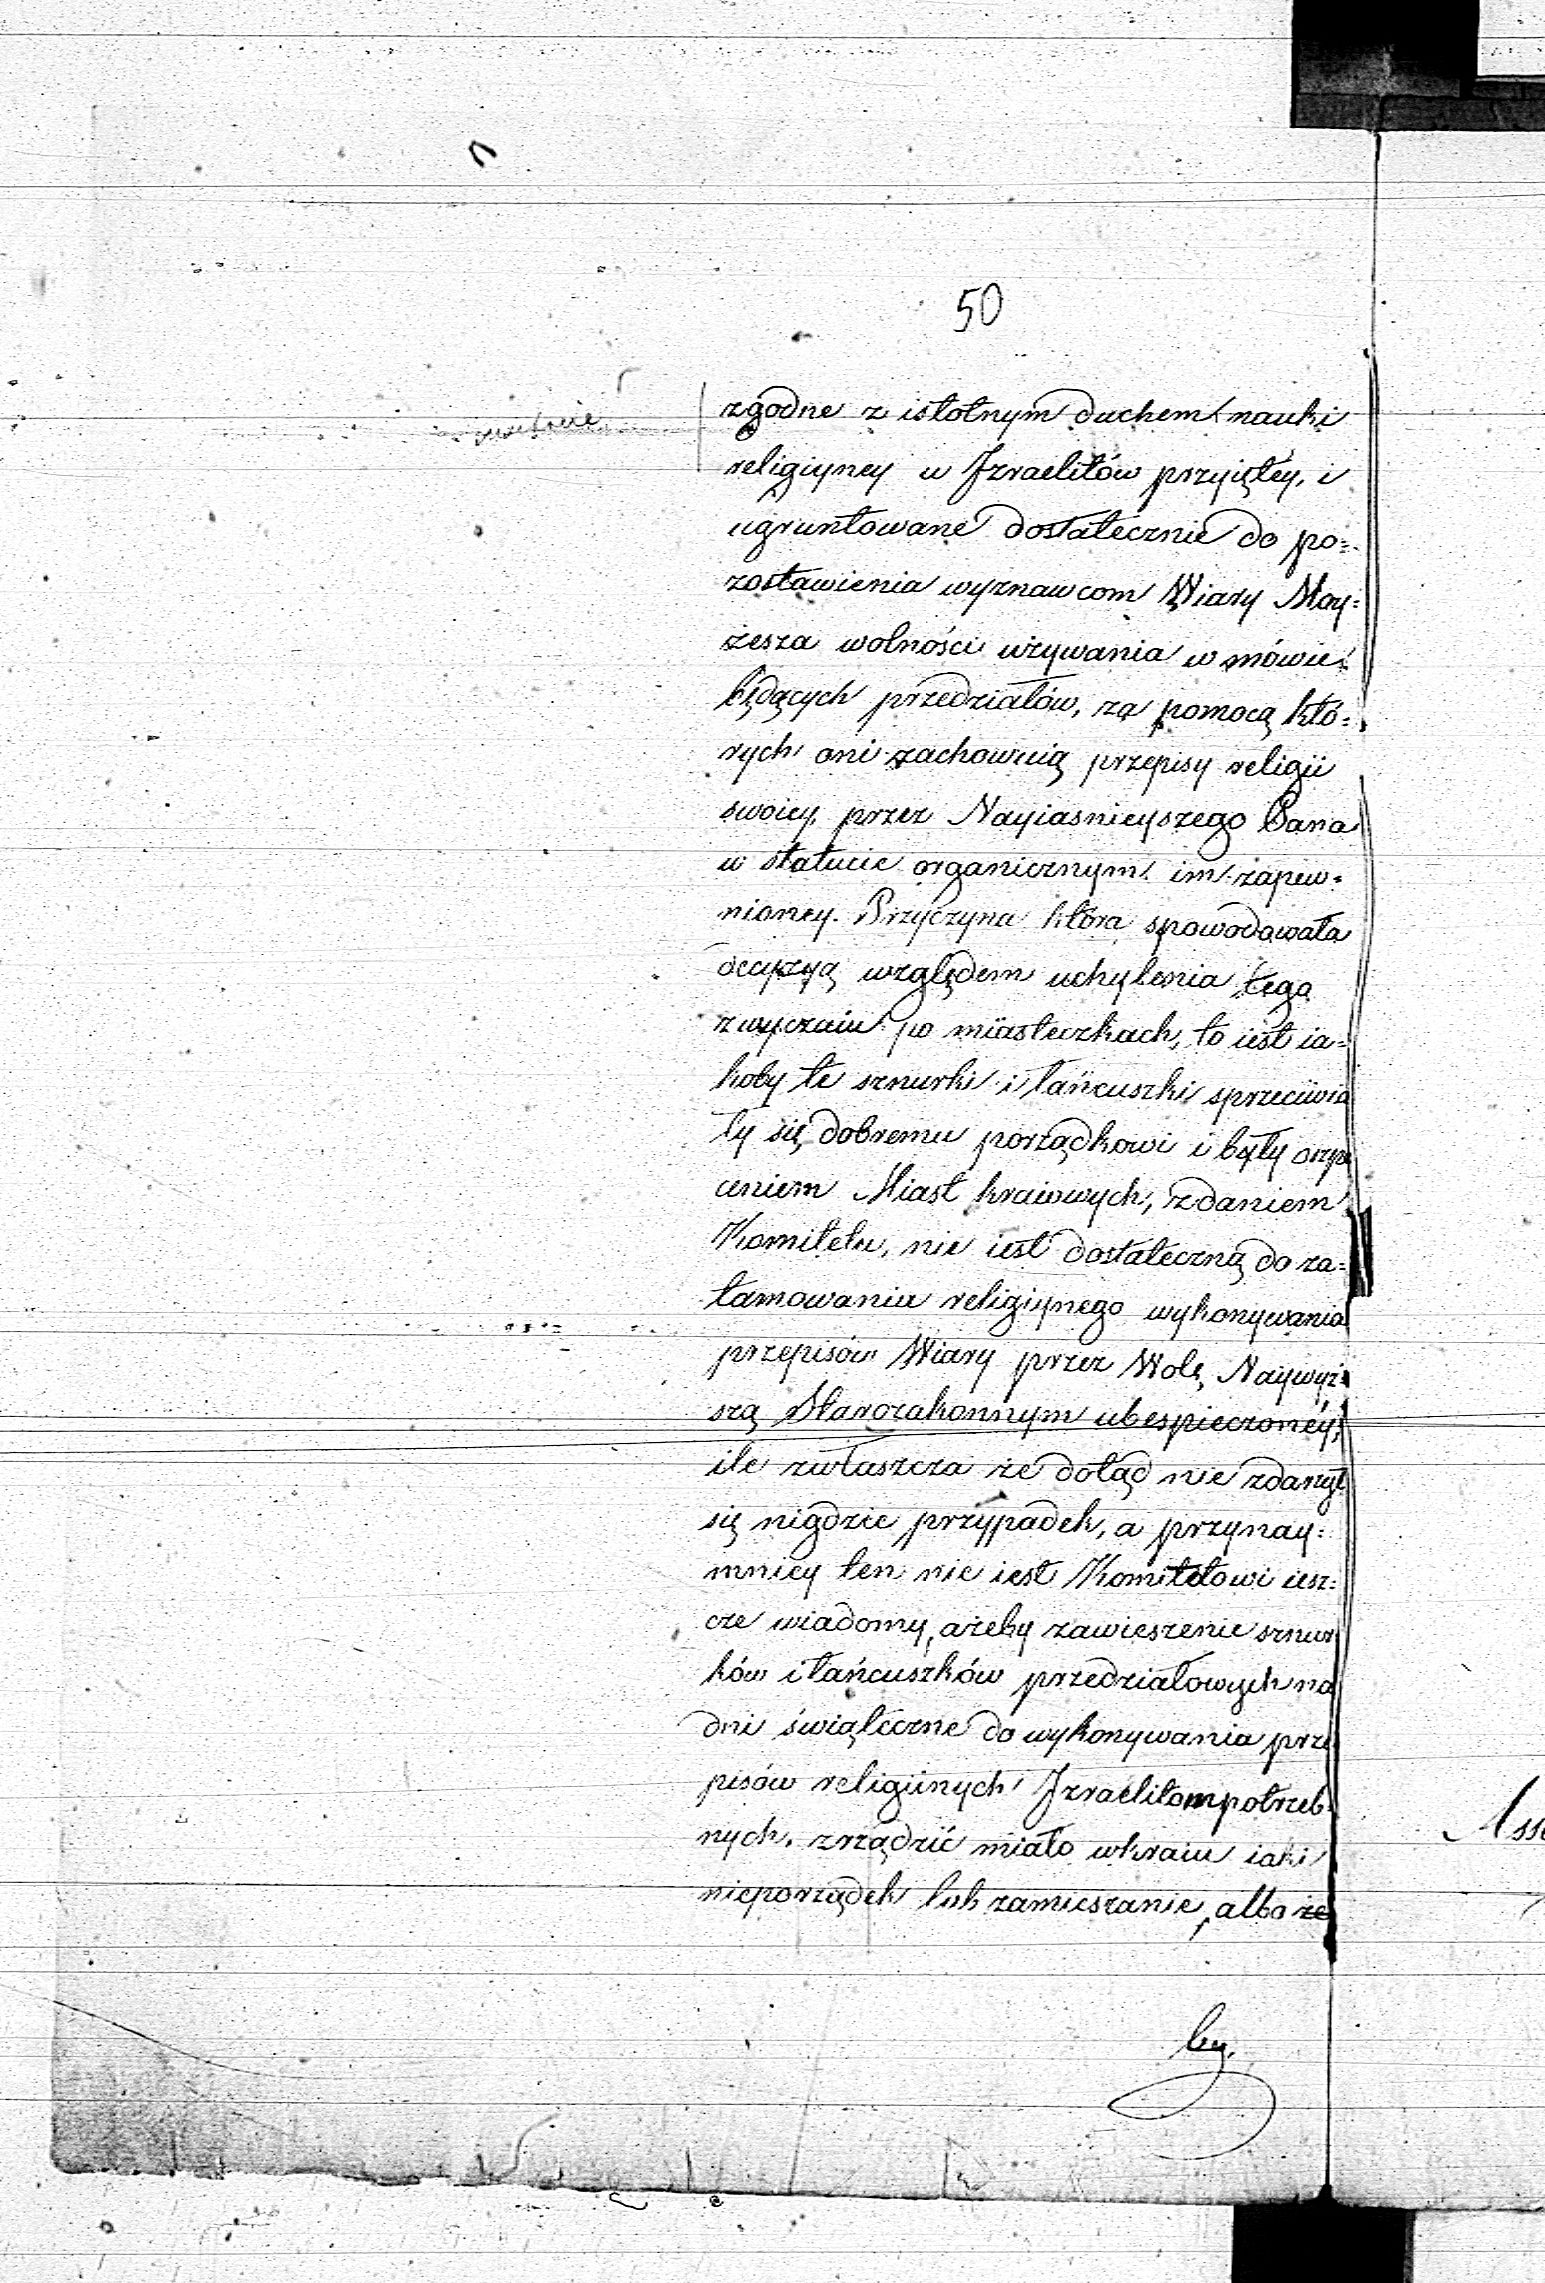 50
zgodne z istotnym duchem nauki
religiyney u Izraelitów przyiętey, i
ugruntowane dostatecznie do po=
zostawienia wyznawcom Wiary May=
żesza wolności używania w mówie
będących przedziałów, za pomocą któ=
rych oni zachowuią przepisy religii
swoiey, przez Nayiasnieyszego Pana
w statucie organicznym im zapew=
nioney. Przyczyna która spowodowała
decyzyą względem uchylenia tego
zwyczaiu po miasteczkach, to iest ia=
koby te sznurki i łańcuszki sprzeciwia
ły się dobremu porządkowi i były oszpe
ceniem Miast kraiowych, zdaniem
Komitetu, nie iest dostateczną do za=
tamowania religiynego wykonywania
przepisów Wiary przez Wolę Naywyż
szą Starozakonnym ubespieczoney,
ile zwłaszcza że dotąd nie zdarzył
się nigdzie przypadek, a przynay=
mniey ten nie iest Komitetowi iesz=
cze wiadomy, ażeby zawieszenie sznur
ków i łańcuszków przedziałowych na
dni świąteczne do wykonywania prze
pisów religiinych Izraelitom potrzeb
nych, zrządzić miało w kraiu iaki
nieporządek lub zamieszanie, albo że
by.
Ass